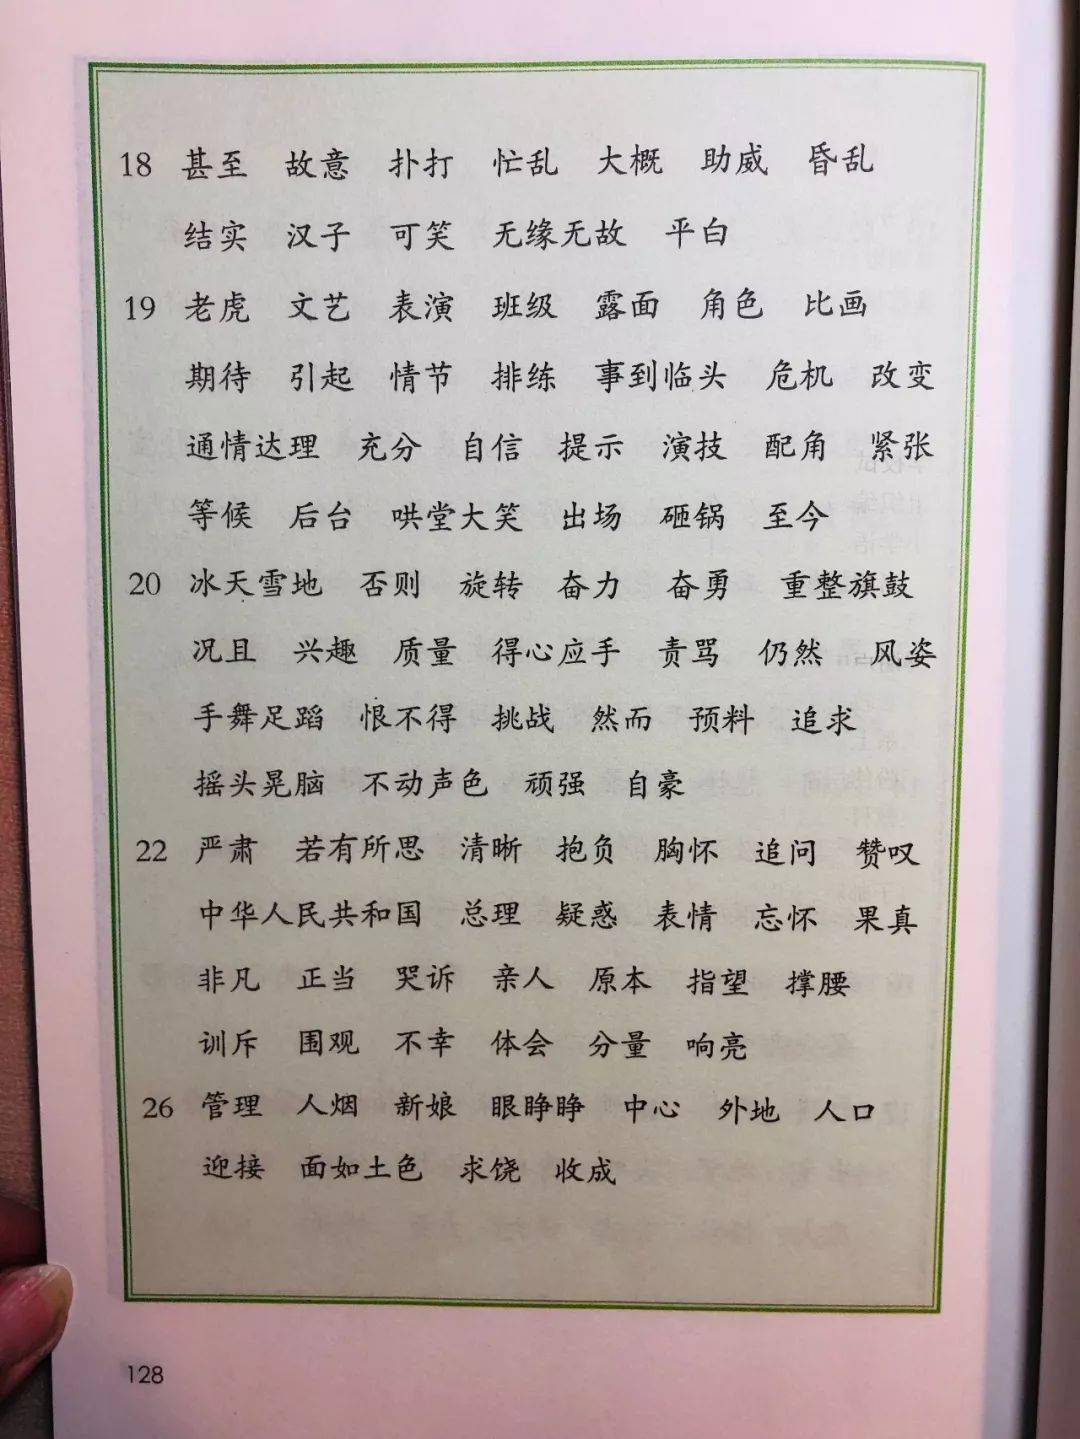 18 甚至 故意 扑打 忙乱 大概 助威 昏乱
结实 汉子 可笑 无缘无故 平白
19 老虎 文艺 表演 班级 露面 角色 比画
期待 引起 情节 排练 事到临头 危机 改变
通情达理 充分 自信 提示 演技 配角 紧张
等候 后台 哄堂大笑 出场 砸锅 至今
20 冰天雪地 否则 旋转 奋力 奋勇 重整旗鼓
况且 兴趣 质量 得心应手 责骂 仍然 风姿
手舞足蹈 恨不得 挑战 然而 预料 追求
摇头晃脑 不动声色 顽强 自豪
22 严肃 若有所思 清晰 抱负 胸怀 追问 赞叹
中华人民共和国 总理 疑惑 表情 忘怀 果真
非凡 正当 哭诉 亲人 原本 指望 撑腰
训斥 围观 不幸 体会 分量 响亮
26 管理 人烟 新娘 眼睁睁 中心 外地 人口
迎接 面如土色 求饶 收成
128